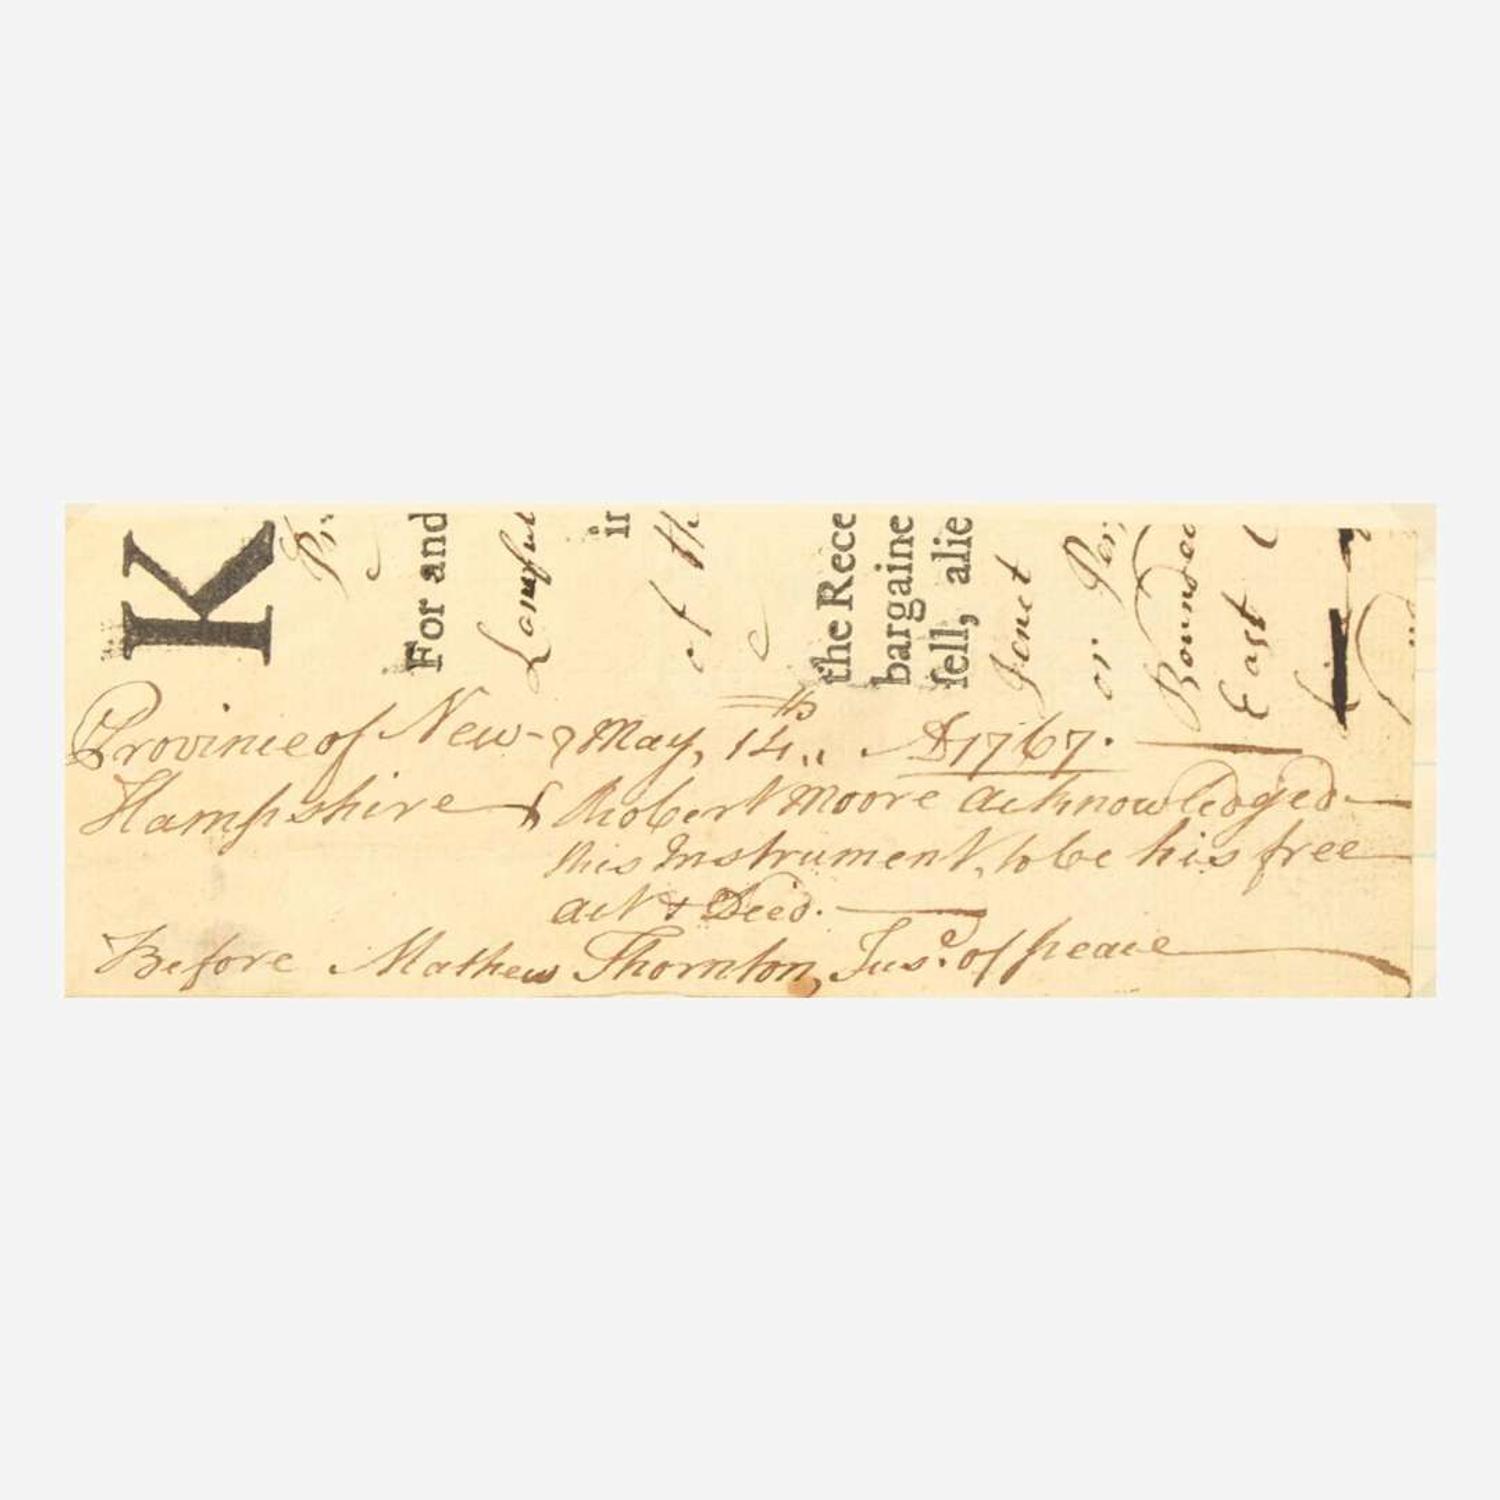 K
For and
Lawful
in
of th
the Rece
bargaine
ſell, alie
Jenet
or
Bounded
East
Province of New- } May, 14th,, AD 1767.
Hampshire } Robert Moore acknowledged
this Instrument, to be his free
act & Deed.
Before Mathew Thornton, Juse. of peace